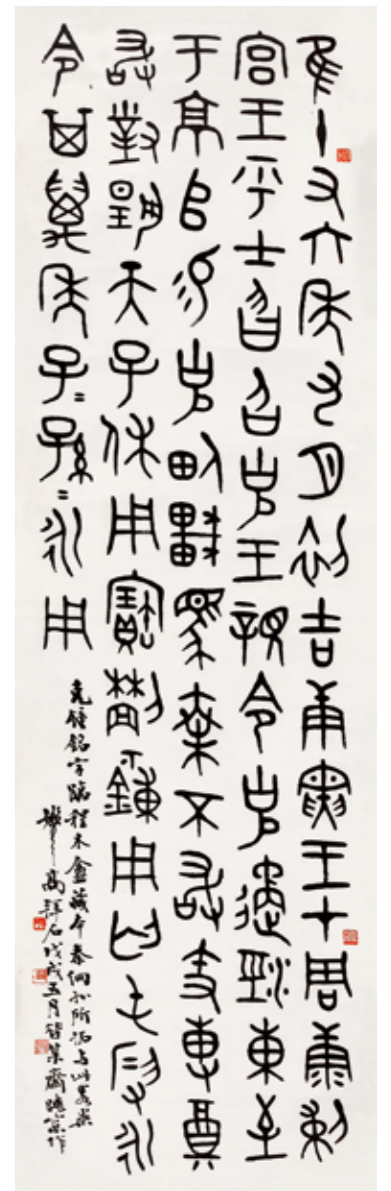 隹十又六年九月初吉庚寅王才周康剌
宮王乎士曶召克王親令克遹涇東至
于京𠂤易克甸車馬乘不敢㒸尃奠
敢對揚天子休用寶林鐘用匄屯叚永
令其萬年子=孫=永用
克鐘銘字 程木盦藏本 所 与此
高拜石戊戌五月 齋 作